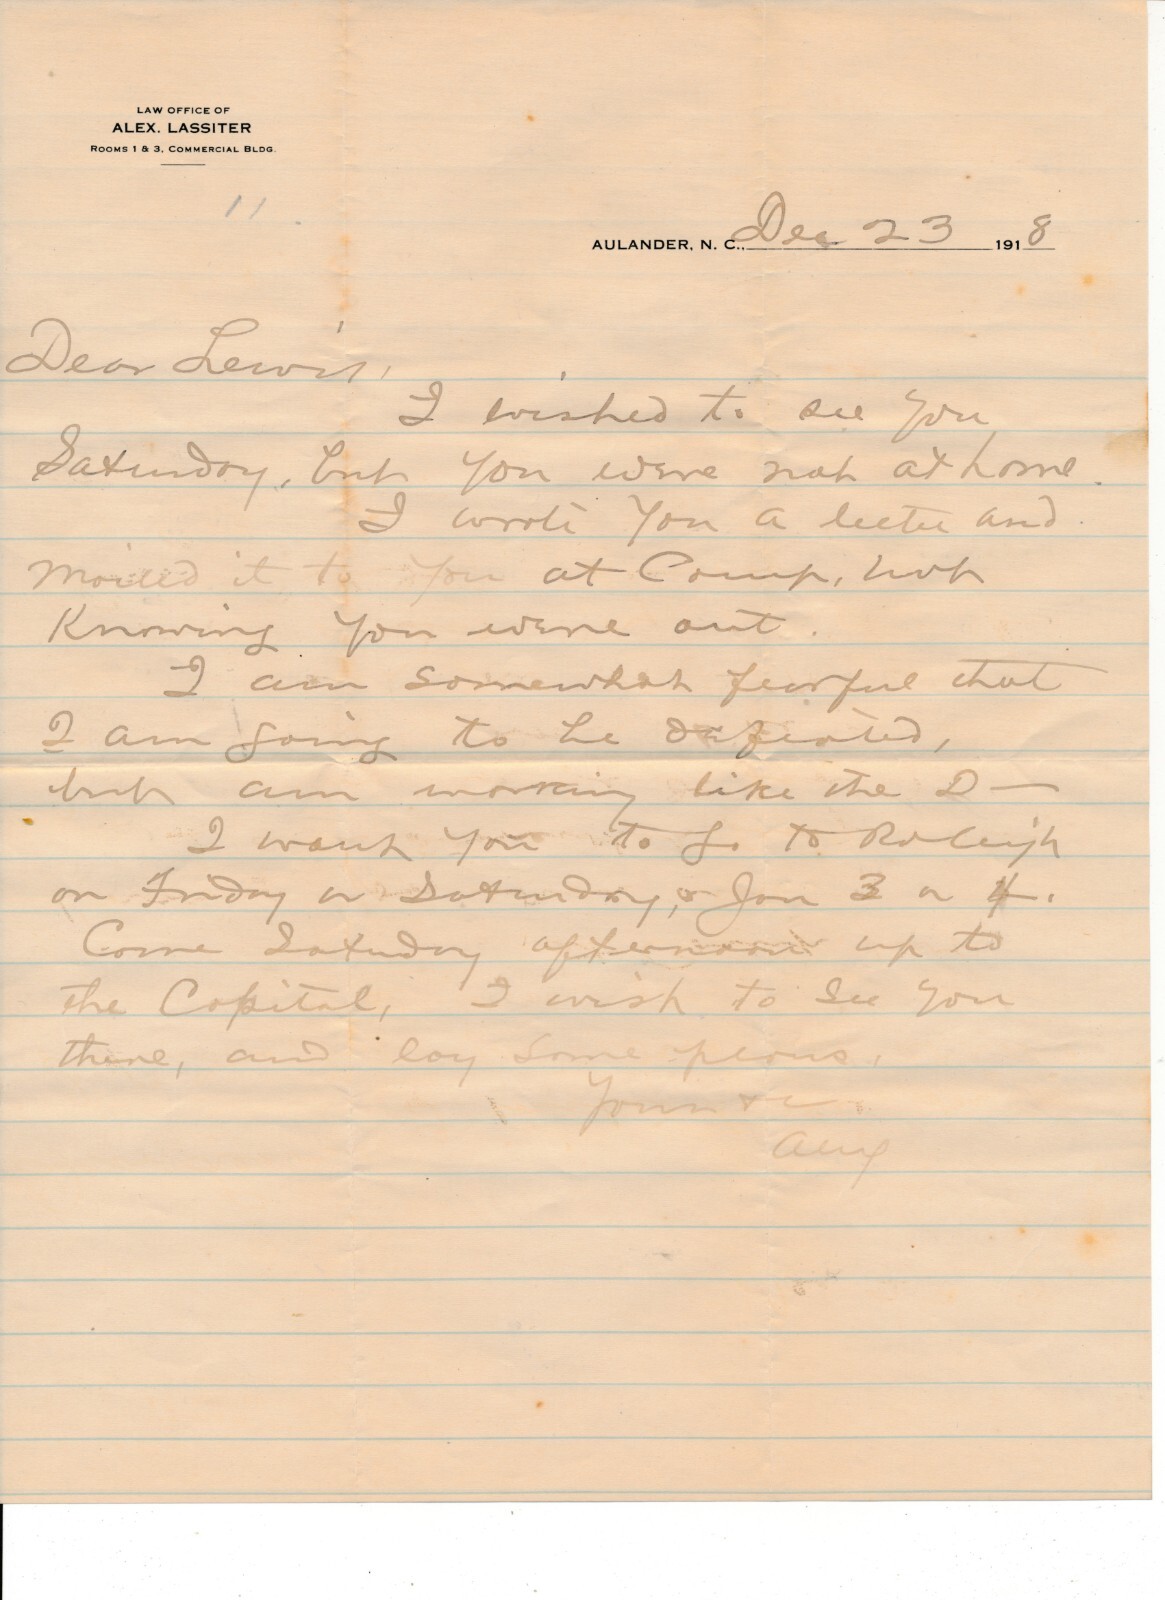 LAW OFFICE OF
ALEX. LASSITER
ROOMS 1 & 3, COMMERCIAL BLDG.
11
AULANDER, N. C., Dec 23 1918
Dear Lewis,
I wished to see you
Saturday, but you were not at home.
I wrote you a letter and
mailed it to you at Camp, not
Knowing you were out.
I am somewhat fearful that
I am going to be defeated,
but am working like the D—
I want you to go to Raleigh
on Friday or Saturday, Jan 3 or 4.
Come Saturday afternoon up to
the Capital, I wish to see you
there, and lay some plans.
Yours &c
Alex